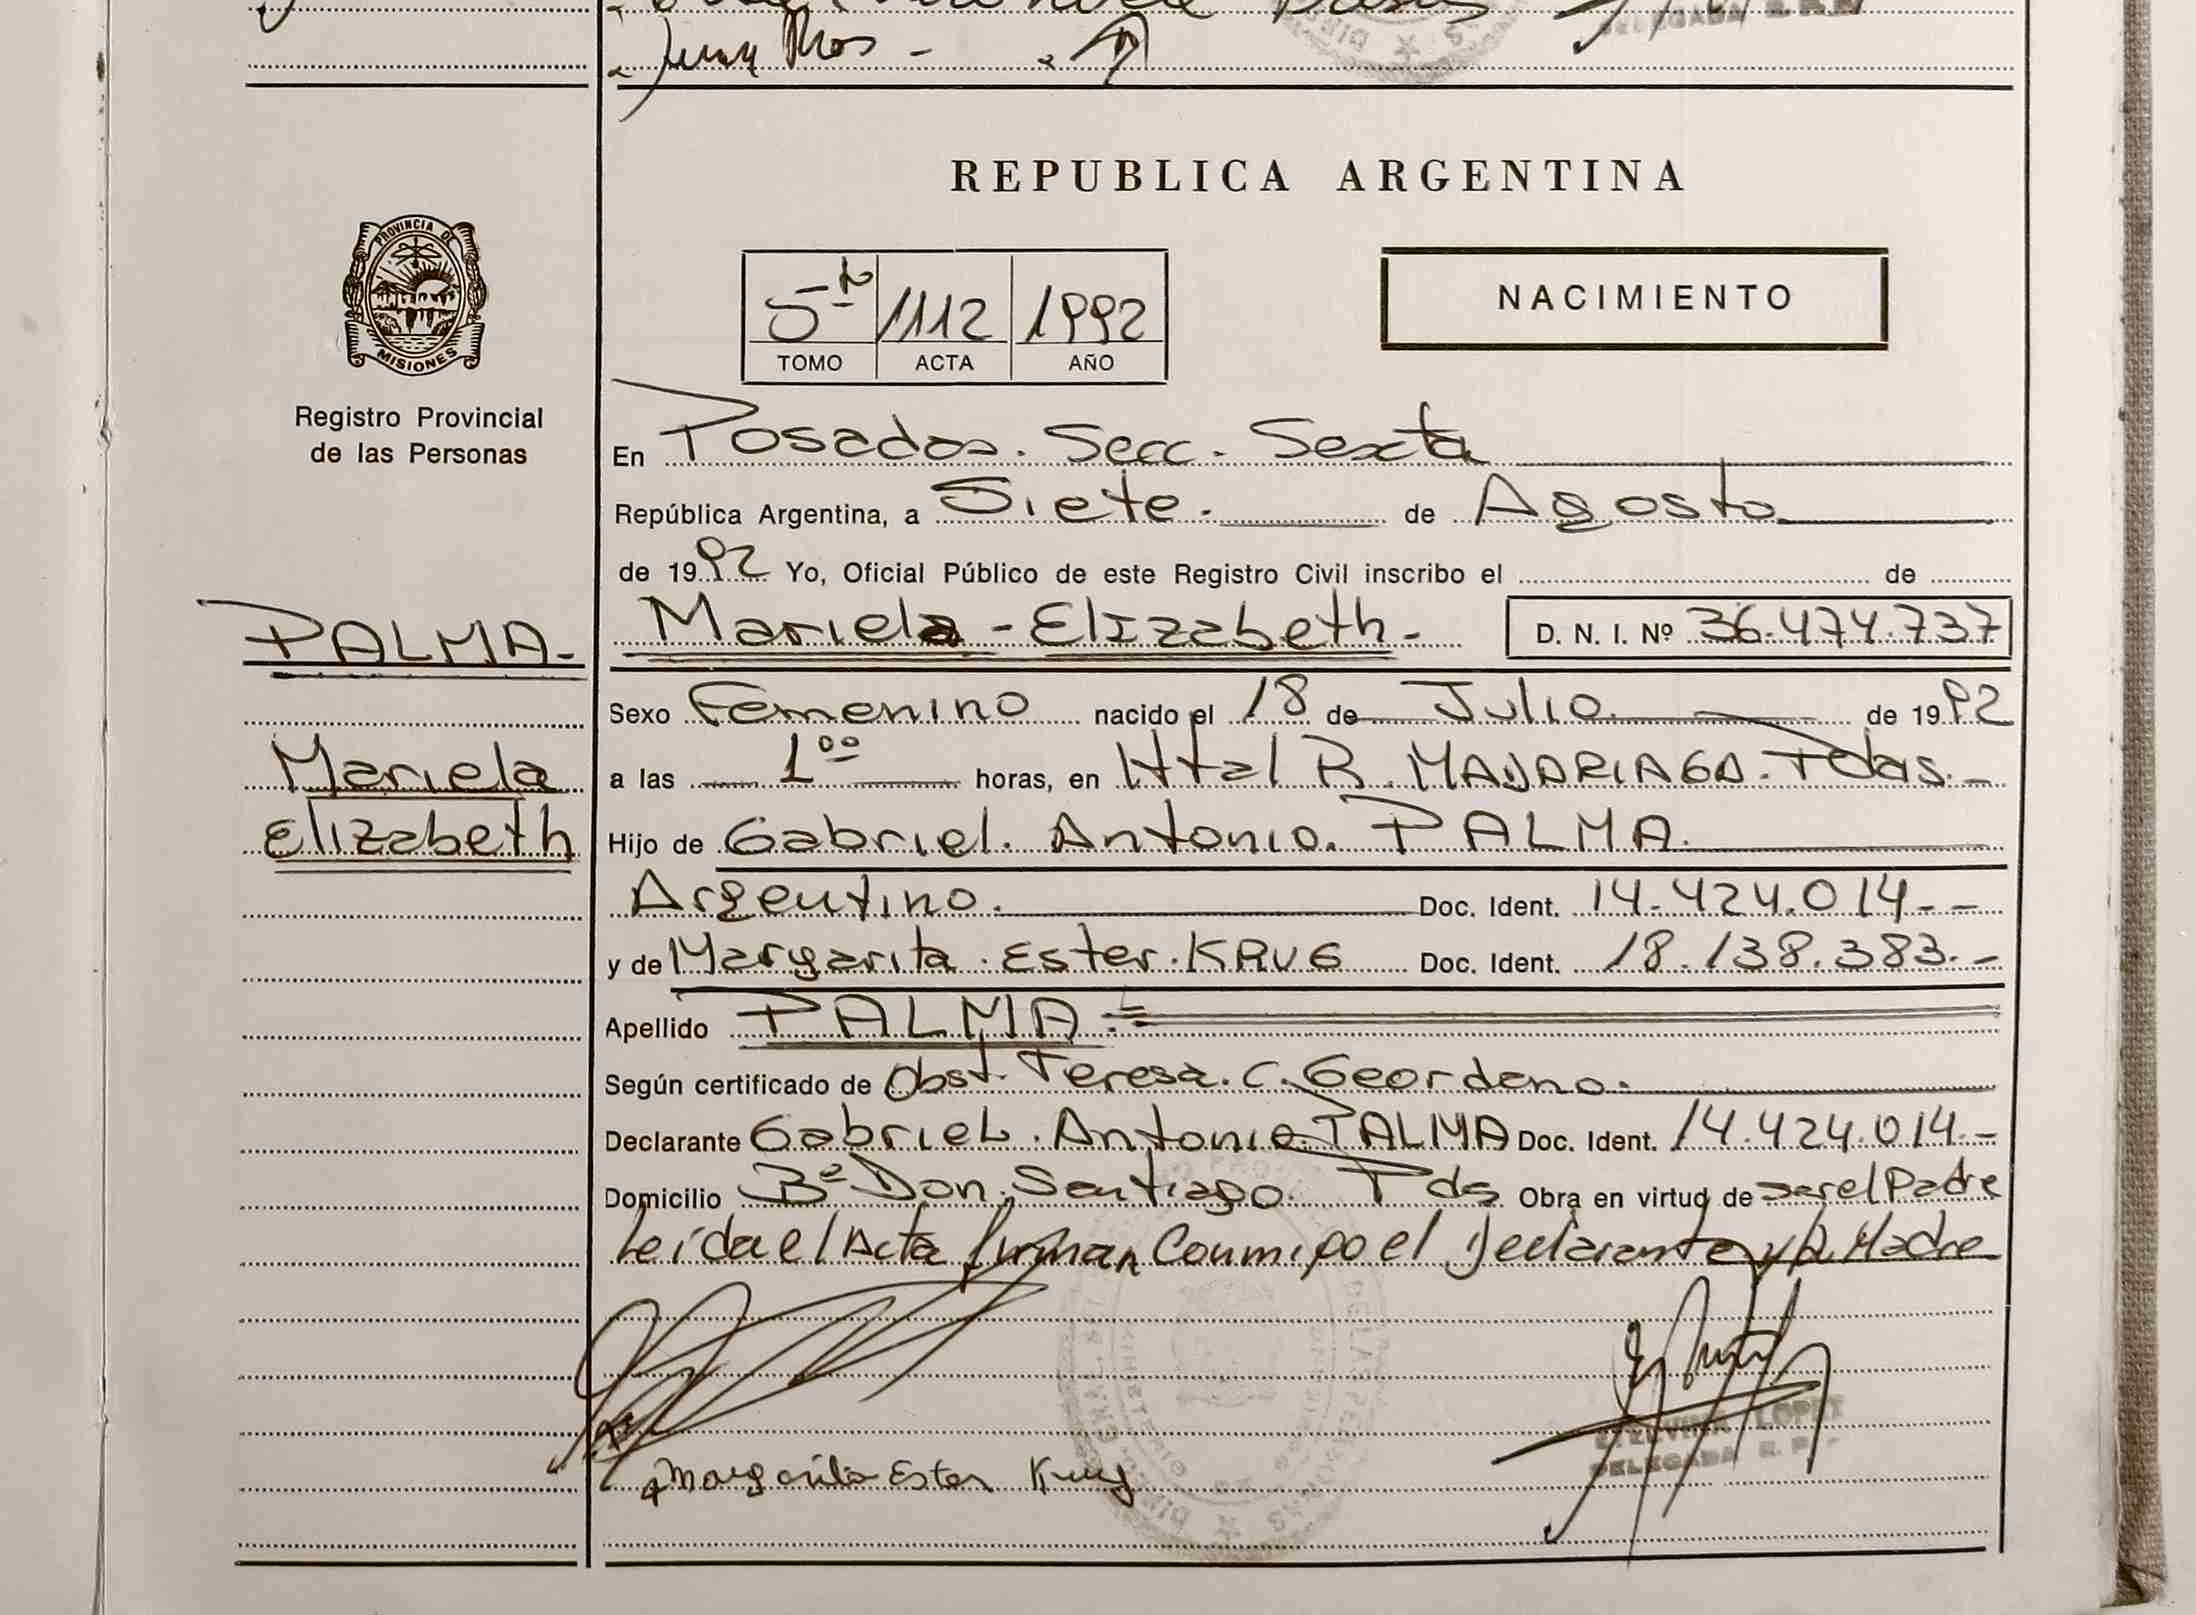 Juan Ros -
DELEGADA R. P.
REPUBLICA ARGENTINA
PROVINCIA DE
MISIONES
Registro Provincial
de las Personas
5to 1112 1992
TOMO ACTA AÑO
NACIMIENTO
En Posadas. Secc. Sexta
República Argentina, a Siete. de Agosto
de 1992 Yo, Oficial Público de este Registro Civil inscribo el de
PALMA.-
Mariela - Elizabeth.- D. N. I. Nº 36.474.737
Sexo Femenino nacido el 18 de Julio de 1992
Mariela
Elizabeth
a las 1°° horas, en Htal R. MADARIAGA. Pdas.-
Hijo de Gabriel. Antonio. PALMA.
Argentino. Doc. Ident. 14.424.014--
y de Margarita. Ester. KRUG Doc. Ident. 18.138.383.-
Apellido PALMA.=
Según certificado de Obst. Teresa. C. Geordano.
Declarante Gabriel. Antonio. PALMA Doc. Ident. 14.424.014.-
Domicilio Bº Don. Santiago. Pds Obra en virtud de ser el Padre
Leída el Acta firman Conmigo el Declarante y la Madre
ETELVINA LOPEZ
DELEGADA R. P.
Margarita Ester Krug